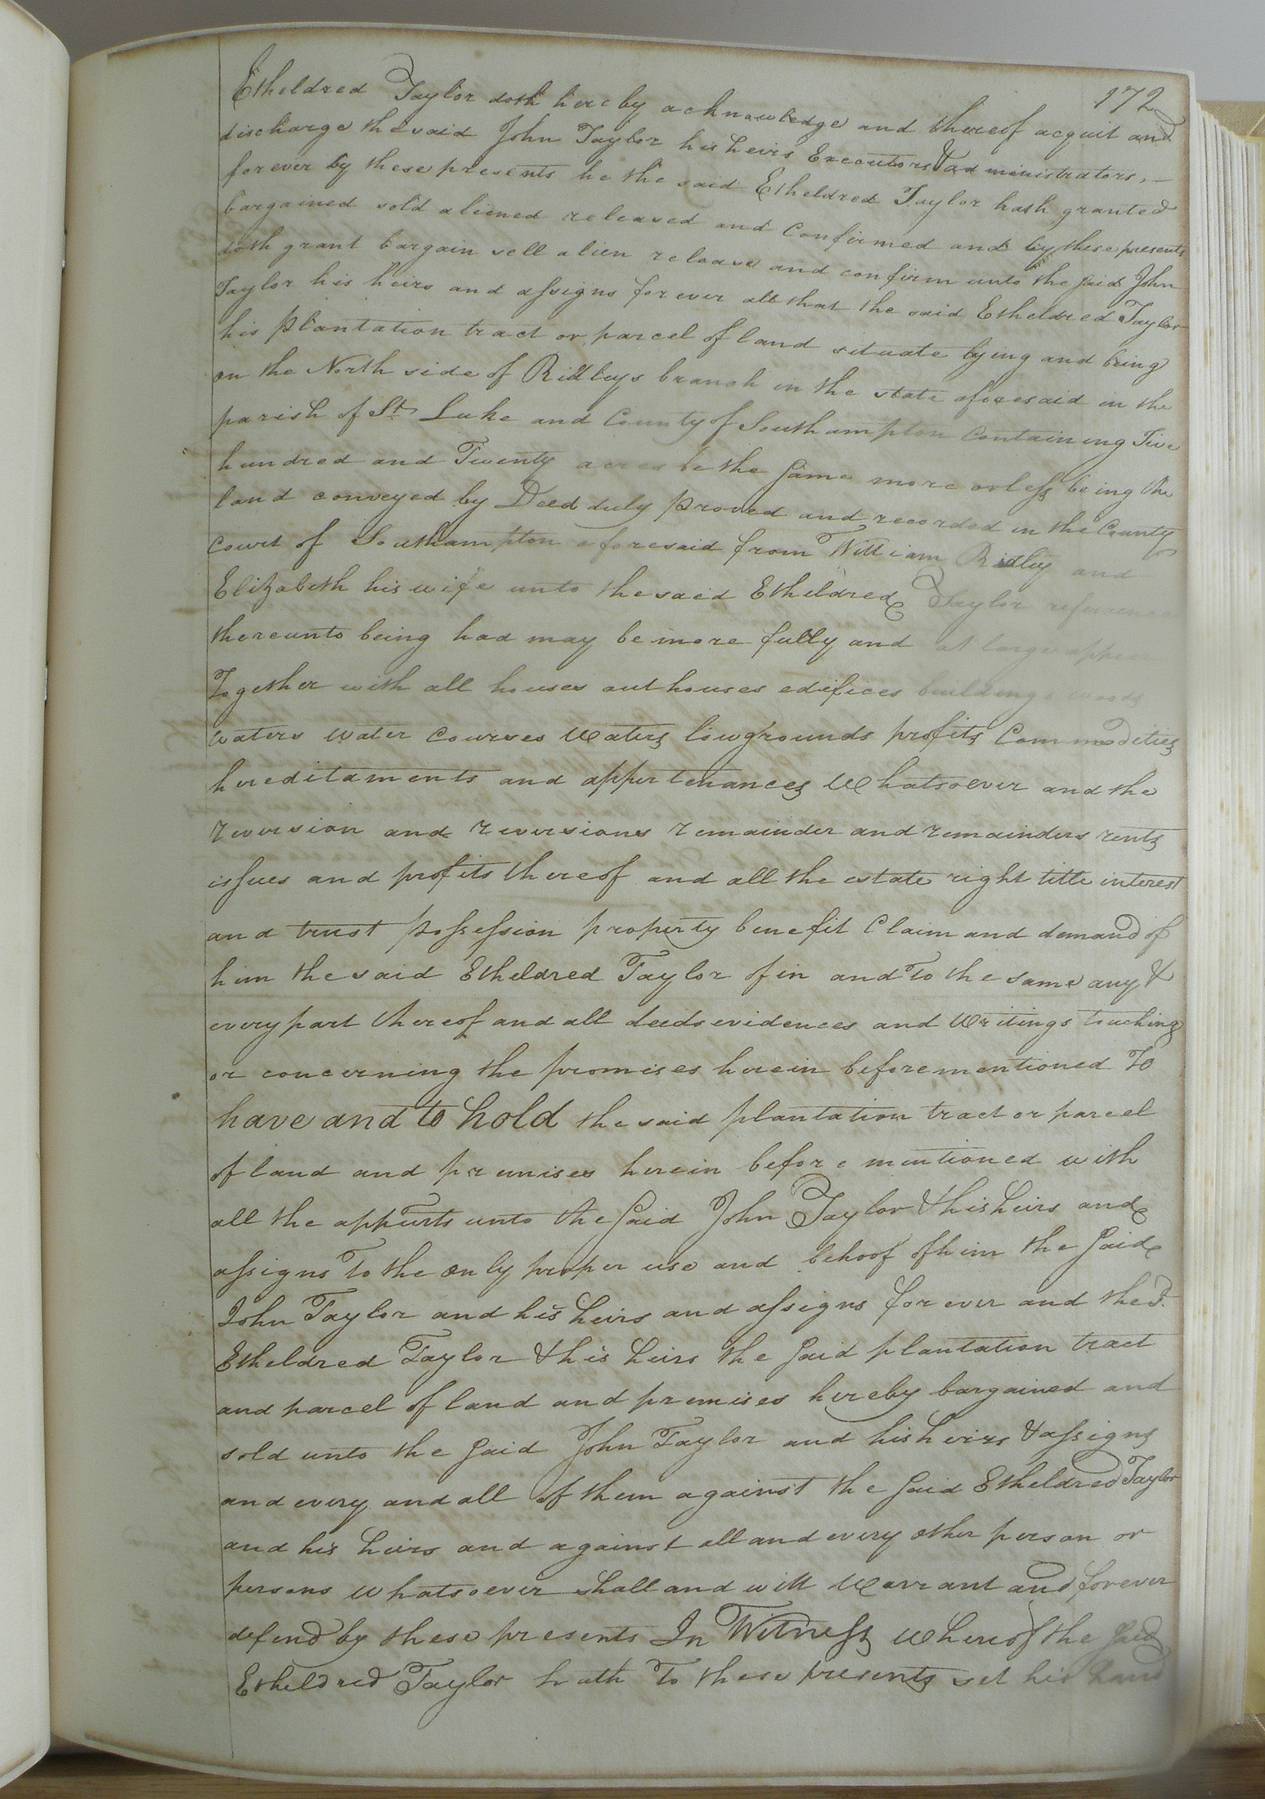 172
Etheldred Taylor doth hereby acknowledge and thereof acquit and
discharge the said John Taylor his heirs Executors & administrators,
forever by these presents he the said Etheldred Taylor hath granted
bargained sold aliened released and confirmed and by these presents
doth grant bargain sell alien release and confirm unto the said John
Taylor his heirs and assigns forever all that the said Etheldred Taylor
his plantation tract or parcel of land situate lying and being
on the North side of Ridleys branch in the state aforesaid in the
parish of St. Luke and County of Southampton Containing
hundred and Twenty acres be the same more or less being the
land conveyed by Deed duly proved and recorded in the County
Court of Southampton aforesaid from William Ridley and
Elizabeth his wife unto the said Etheldred Taylor reference
thereunto being had may be more fully and at large appear
Together with all houses outhouses edifices buildings woods
waters water courses waters lowgrounds profits Commodities
hereditaments and appertenances Whatsoever and the
reversion and reversions remainder and remainders rents
issues and profits thereof and all the estate right title interest
and trust possession property benefit Claim and demand of
him the said Etheldred Taylor of in and To the same any &
every part thereof and all deeds evidences and writings touching
or concerning the promises herein beforementioned To
have and to hold the said plantation tract or parcel
of land and premises herein before mentioned with
all the appurts unto the said John Taylor & his heirs and
assigns To the only proper use and behoof of him the said
John Taylor and his heirs and assigns forever and the sd.
Etheldred Taylor & his heirs the said plantation tract
and parcel of land and premises hereby bargained and
sold unto the said John Taylor and his heirs & assigns
and every and all of them against the said Etheldred Taylor
and his heirs and against all and every other person or
persons whatsoever shall and will warrant and forever
defend by these presents In Witness whereof the said
Etheldred Taylor hath To these presents set his hand